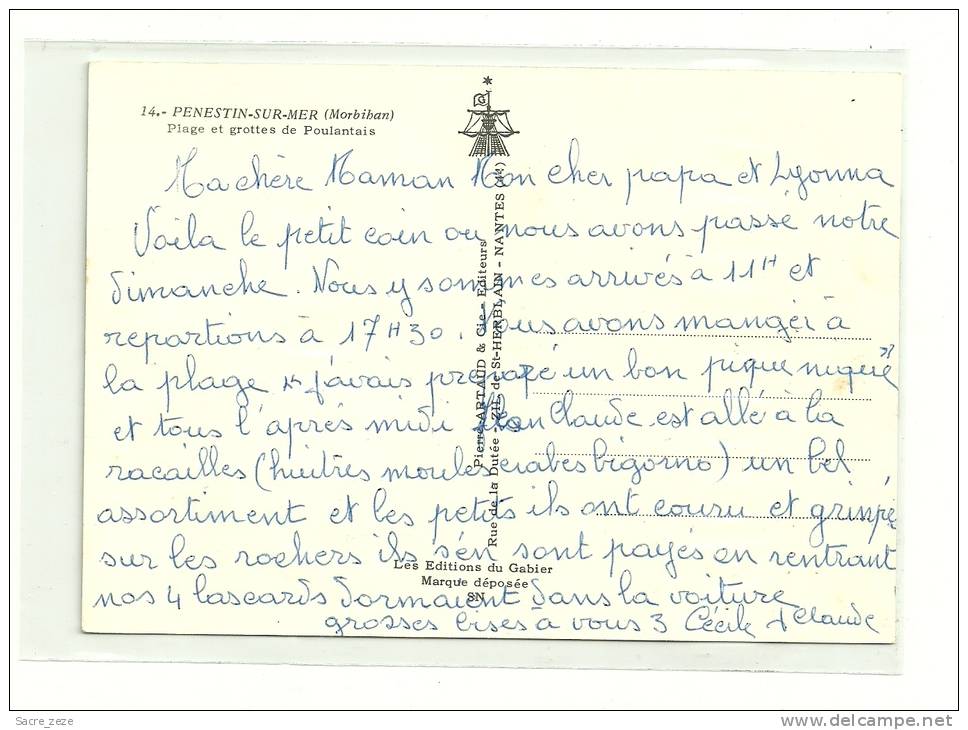 14.- PENESTIN-SUR-MER (Morbihan)
Plage et grottes de Poulantais
Ma chère Maman Mon cher papa et Lyonna
Voila le petit coin ou nous avons passé notre
dimanche. Nous y sommes arrivés à 11H et
repartions à 17H30. Nous avons mangei à
la plage j'avais preparé un bon pique nique
et tous l'après midi Jean Claude est allé à la
racailles (huitres moules crabes bigorno) un bel
assortiment et les petits ils ont couru et grimpé
sur les rochers ils s'én sont payés en rentrant
nos 4 lascards dormaient dans la voiture
grosses bises a vous 3 Cécile + Claude
Pierre ARTAUD & Cie - Editeurs
Rue de la Dutée - ZIL de St-HERBLAIN - NANTES (44)
Les Editions du Gabier
Marque déposée
SN
Sacre_zeze
www.delcampe.net